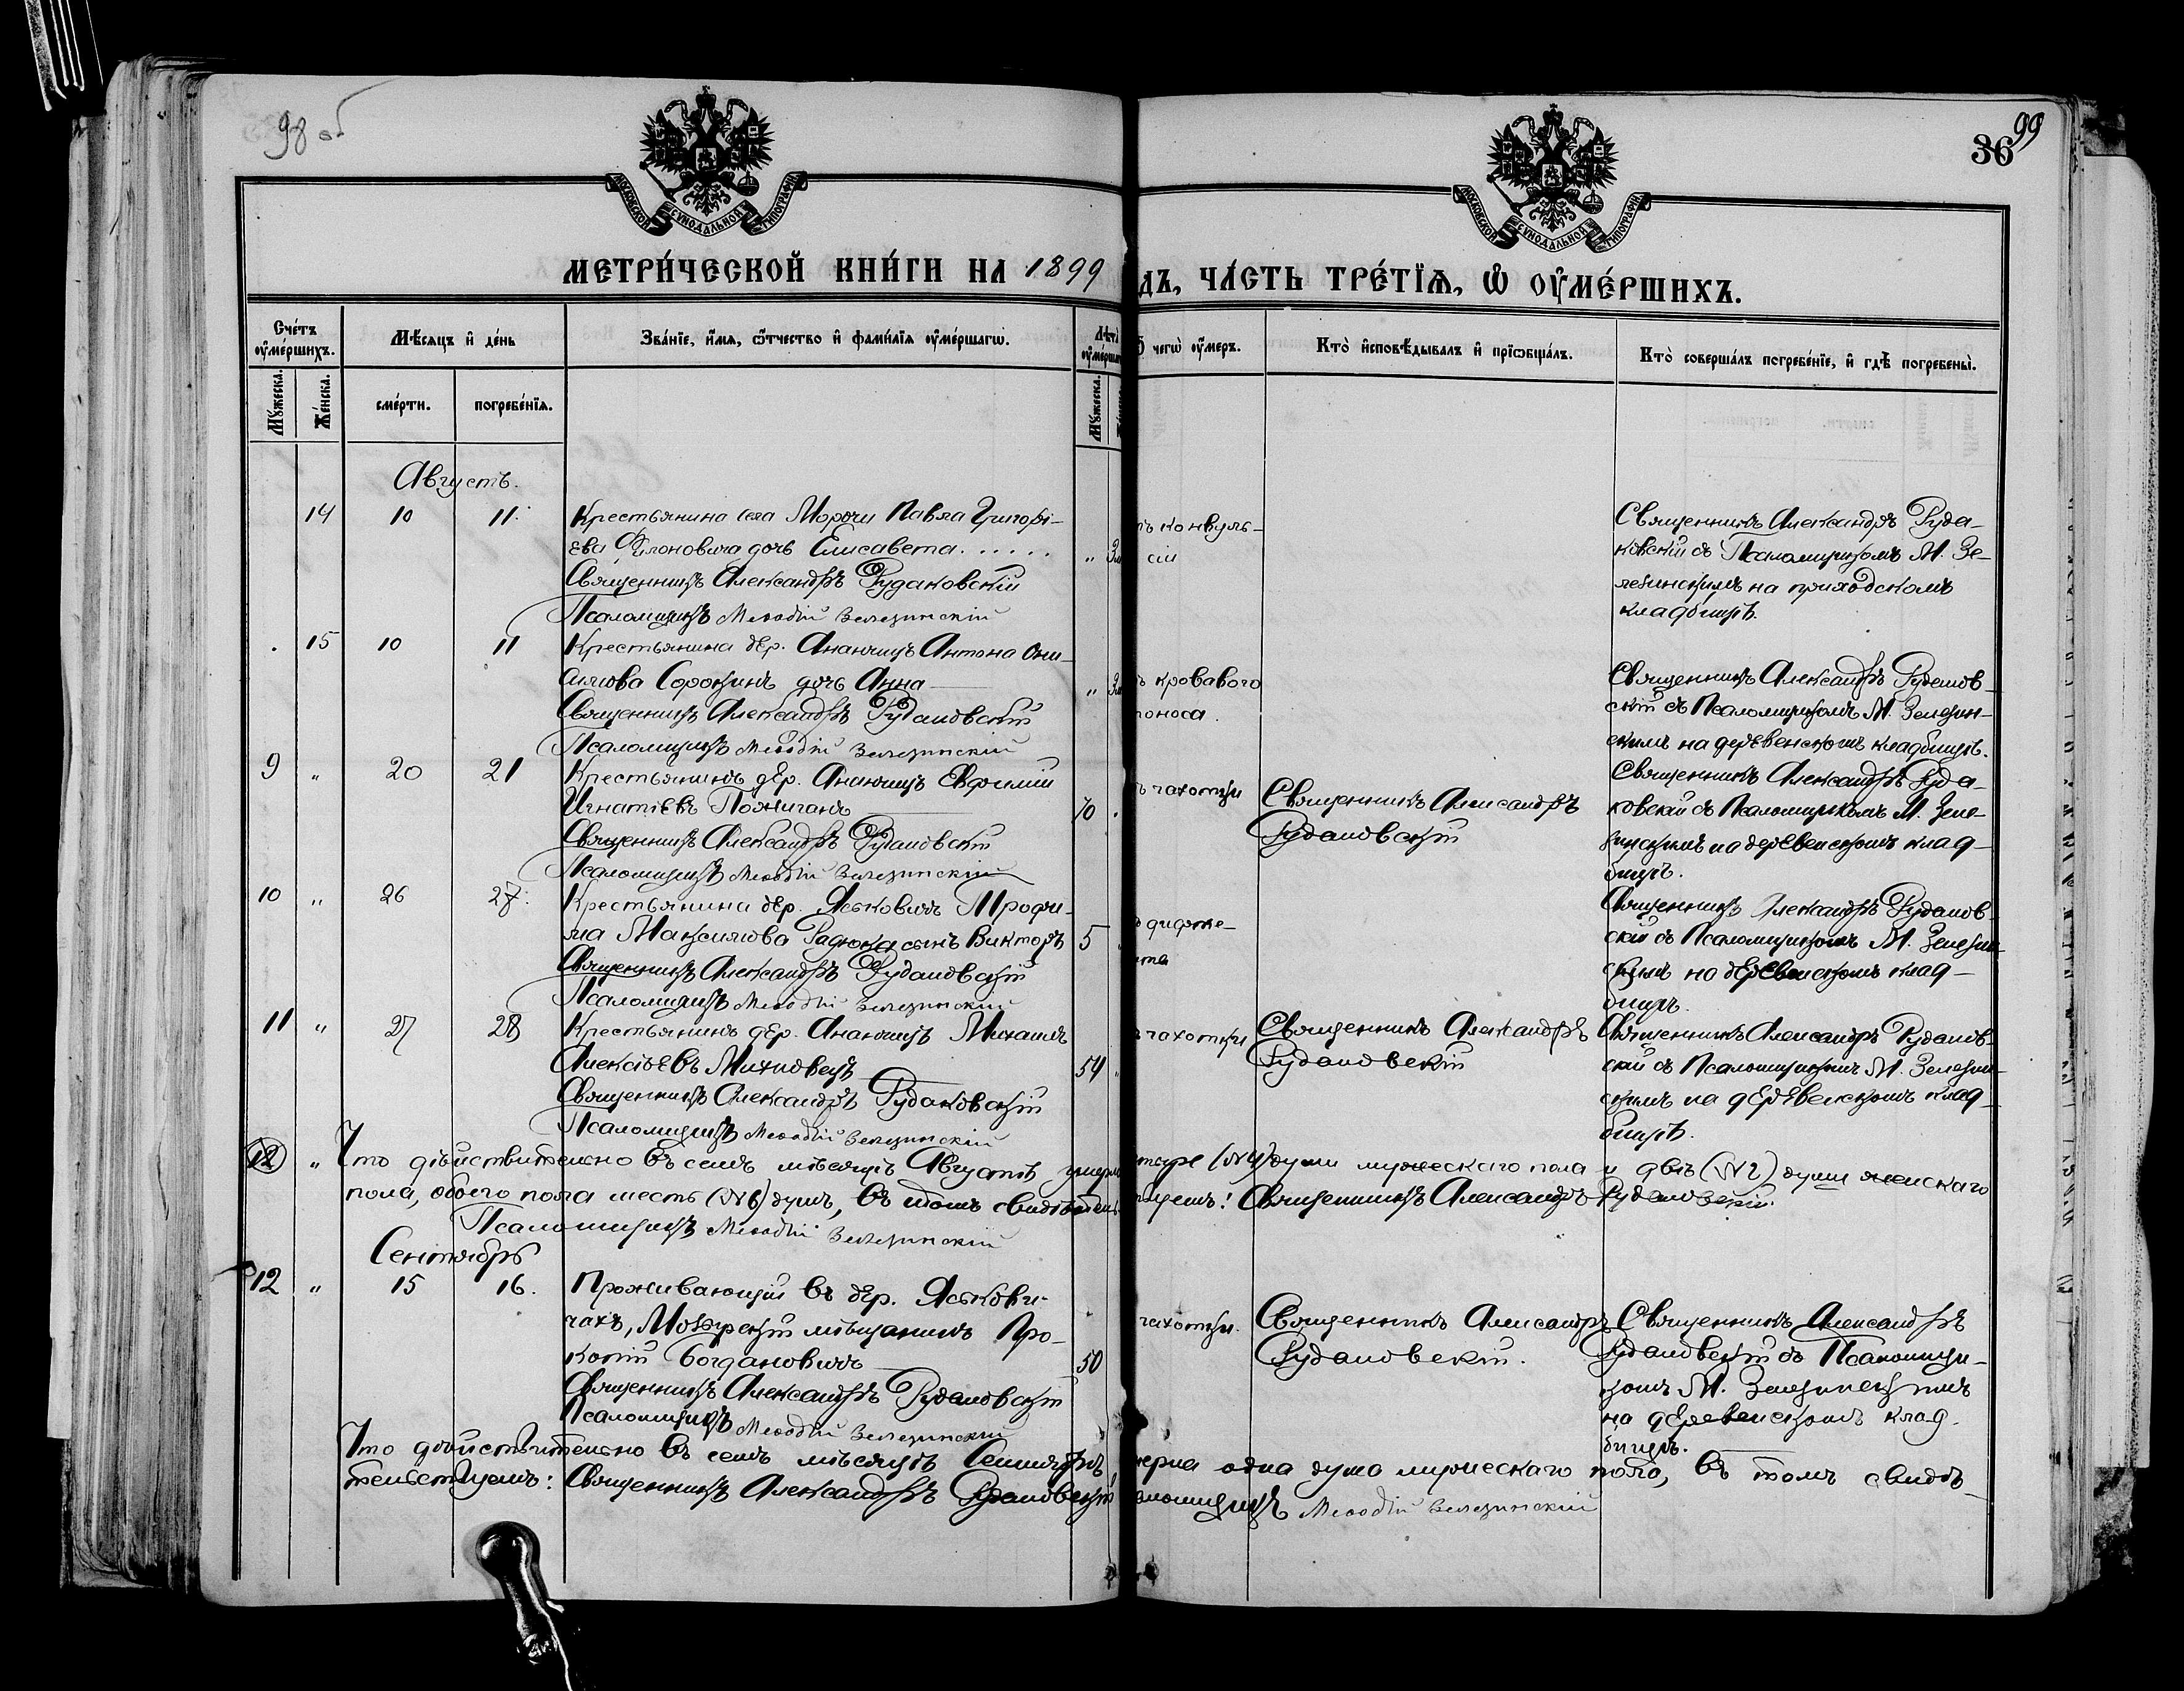 98 об
99
36
МОСКОВСКОЙ СѴНОДАЛЬНОЙ ТИПОГРАФІИ
МОСКОВСКОЙ СѴНОДАЛЬНОЙ ТИПОГРАФІИ
МЕТРИ́ЧЕСКОЙ КНИ́ГИ НА 1899
ДЪ, ЧА́СТЬ ТРЕ́ТЇѦ, Ѡ҆ ОУ҆МЕ́РШИХЪ.
Сче́тъ оу҆ме́ршихъ.
Мѣ́сяцъ и҆ де́нь
Зва́нїе, и҆́мѧ, ѻ҆́тчество и҆ фами́лїѧ оу҆ме́ршагѡ.
Лѣ́та
оу҆ме́рша
чегѡ̀ оу҆́меръ.
Кто̀ и҆сповѣ́дывалъ и҆ прїѡбща́лъ.
Кто̀ соверша́лъ погребе́нїе, и҆ гдѣ̀ погребены̀.
Мꙋ́жеска.
Же́нска.
сме́рти.
погребе́нїѧ.
Мꙋ́жеска.
Августъ.
14 10 11. Крестьянина села Морочи Павла Григорі-
ева Филоновича дочь Елисавета . . . . .
Священникъ Александръ Рудаковскій
Псаломщикъ Меѳодій Зелезинскій
конвуль-
сіи
Священникъ Александръ Руда-
ковскій съ Псаломщикомъ М. Зе-
лезинскимъ на приходскомъ
кладбищѣ.
15 10 11 Крестьянина дер. Ананчицъ Антона Они-
симова Сорокинъ дочь Анна
Священникъ Александръ Рудаковскій
Псаломщикъ Меѳодій Зелезинскій
кровавого
поноса.
Священникъ Александръ Рудаков-
скій съ Псаломщикомъ М. Зелезин-
скимъ на деревенскомъ кладбищѣ.
9 " 20 21 Крестьянинъ дер. Ананчицъ Евфимій
Игнатіевъ Пожиганъ 70
Священникъ Александръ Рудаковскій
Псаломщикъ Меѳодій Зелезинскій
чахотки
Священникъ Александръ
Рудаковскій
Священникъ Александръ Руда-
ковскій съ Псаломщикомъ М. Зеле-
зинскимъ на деревенскомъ клад-
бищѣ.
10 " 26 27. Крестьянина дер. Яськовичъ Трофи-
ма Максимова Радюка сынъ Викторъ 5
Священникъ Александръ Рудаковскій
Псаломщикъ Меѳодій Зелезинскій
Священникъ Александръ Рудаков-
скій съ Псаломщикомъ М. Зелезин-
скимъ на деревенскомъ клад-
бищѣ.
11 " 27 28 Крестьянинъ дер. Ананчицъ Михаилъ
Алексіевъ Михновецъ 54
Священникъ Александръ Рудаковскій
Псаломщикъ Меѳодій Зелезинскій
чахотки
Священникъ Александръ
Рудаковскій
Священникъ Александръ Рудаков-
скій съ Псаломщикомъ М. Зелезин-
скимъ на деревенскомъ клад-
бищѣ.
12 " Что дѣйствительно въ семъ мѣсяцѣ Августѣ умерл
тыре (№4) души мужескаго пола и двѣ (№2) души женскаго
пола, обоего пола шесть (№6) душъ, въ томъ свидѣтель
вуемъ: Священникъ Александръ Рудаковскій.
Псаломщикъ Меѳодій Зелезинскій
Сентябрь
12 " 15 16. Проживающій въ дер. Яськови-
чахъ, Мозырскій мѣщанинъ Про-
копій Богдановичъ 50
Священникъ Александръ Рудаковскій
Псаломщикъ Меѳодій Зелезинскій
чахотки.
Священникъ Александръ
Рудаковскій.
Священникъ Александръ
Рудаковскій съ Псаломщи-
комъ М. Зелезинскимъ
на деревенскомъ клад-
бищѣ.
Что дѣйствительно въ семъ мѣсяцѣ Сентябрѣ
мерла одна душа мужескаго пола, въ томъ свидѣ-
тельствуемъ: Священникъ Александръ Рудаковскій
аломщикъ Меѳодій Зелезинскій